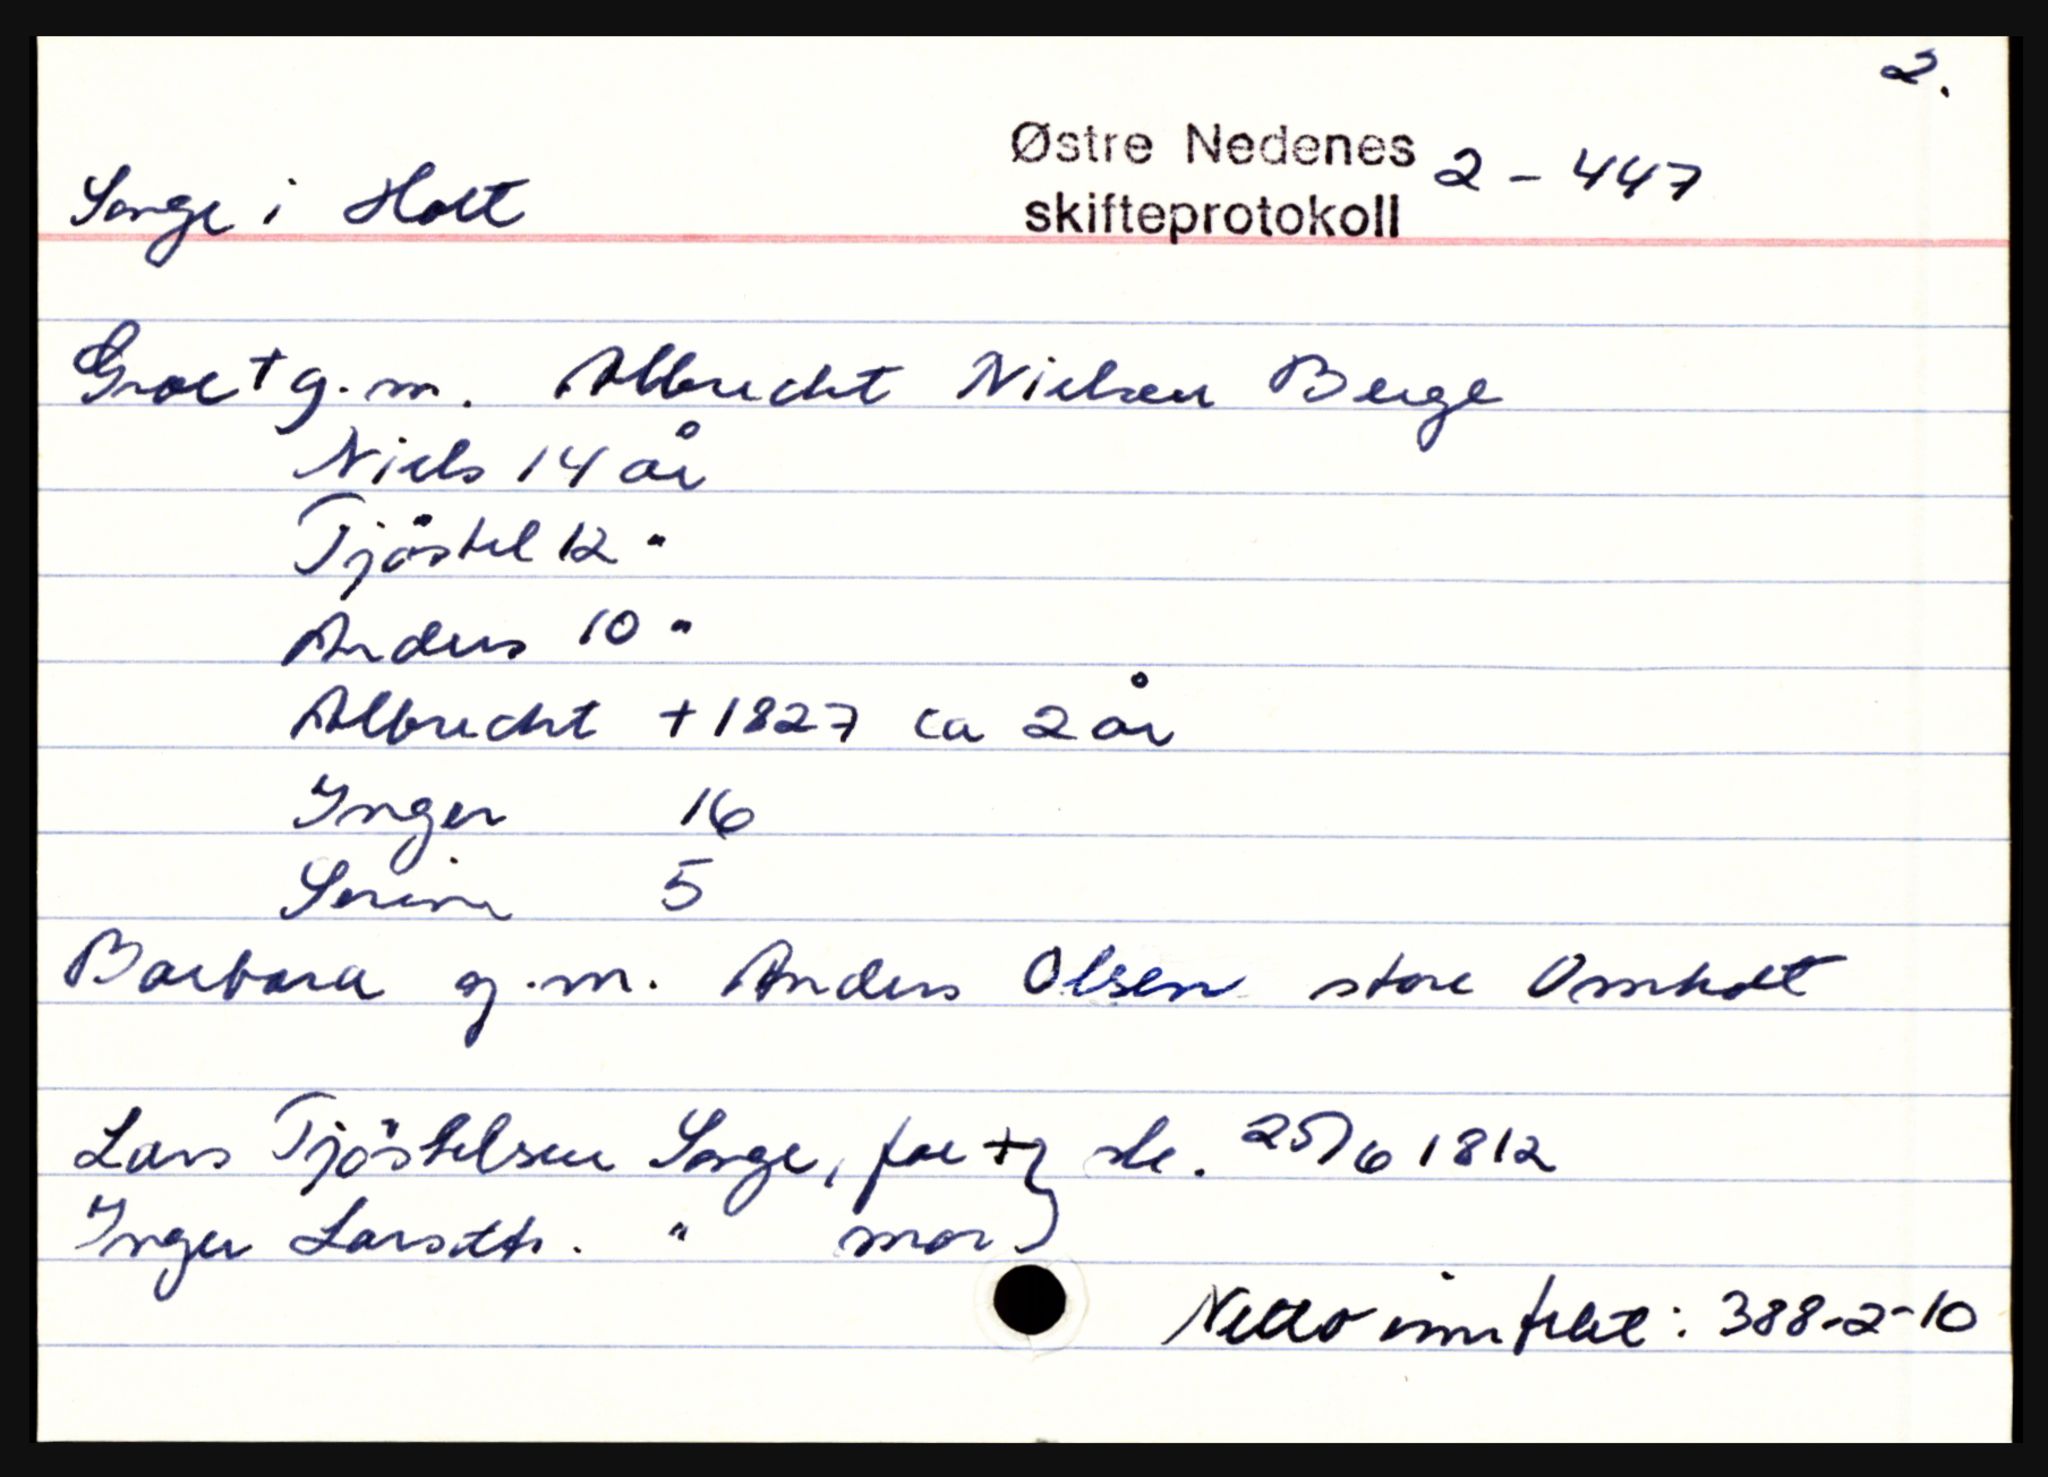 2.
Østre Nedenes
skifteprotokoll 2-447
Songe i Holt
Groe + g.m. Albrecht Nielsen Berge
Niels 14 år
Tjöstel 12 "
Anders 10 "
Albrecht + 1827 ca 2 år
Inger 16
Serine 5
Barbara g.m. Anders Olsen store Omholt
Lars Tjöstelsen Songe, far + } sk. 25/6 1812
Inger Larsdtr. " mor }
Netto inntekt: 388-2-10